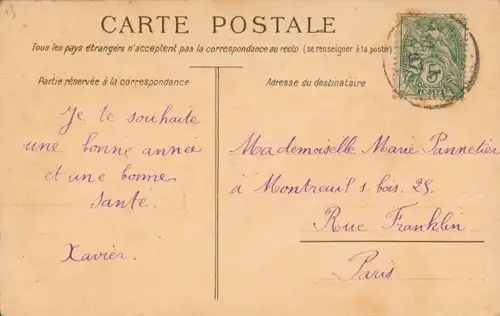 CARTE POSTALE
Tous les pays étrangers n'acceptent pas la correspondance au recto (se renseigner à la poste)
Partie réservée à la correspondance
Adresse du destinataire
Je te souhaite
une bonne année
et une bonne
santé.
Xavier.
Mademoiselle Marie Pannetier
à Montreuil s. bois. 25.
Rue Franklin
Paris
5
POSTES